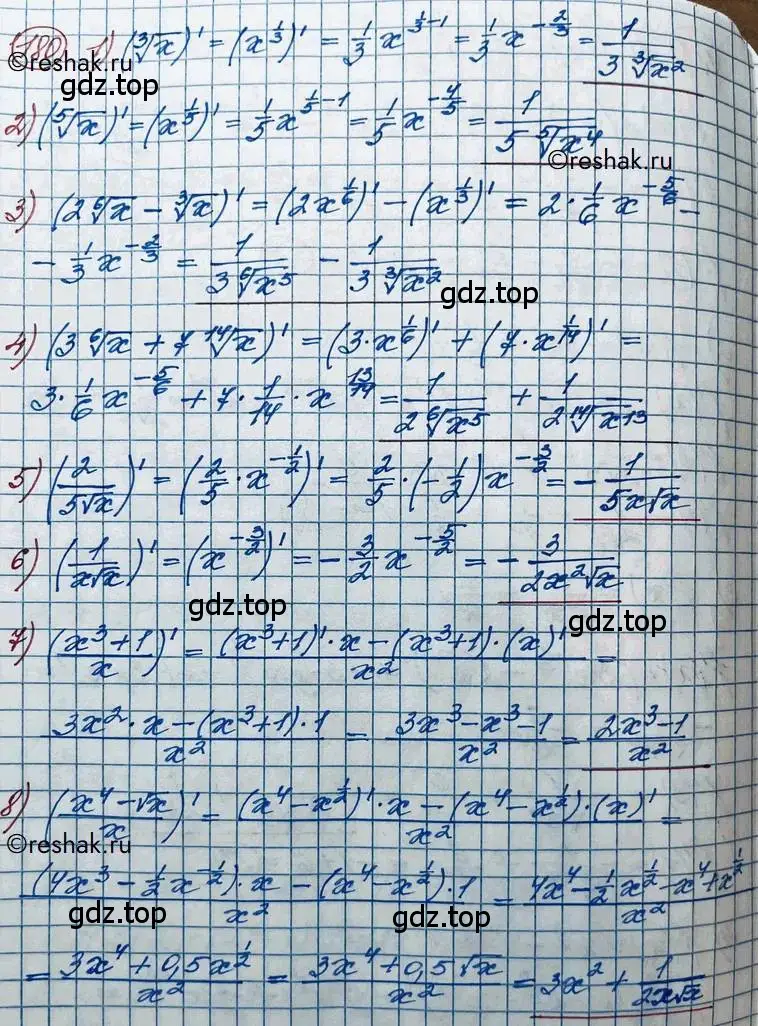 780. 1) (∛x)' = (x^{1/3})' = 1/3 x^{1/3-1} = 1/3 x^{-2/3} = 1/(3∛x²)
gdz.top
2) (⁵√x)' = (x^{1/5})' = 1/5 x^{1/5-1} = 1/5 x^{-4/5} = 1/(5 ⁵√x⁴)
©reshak.ru
3) (2⁶√x - ∛x)' = (2x^{1/6})' - (x^{1/3})' = 2·1/6 x^{-5/6} -
- 1/3 x^{-2/3} = 1/(3⁶√x⁵) - 1/(3∛x²)
gdz.top
4) (3⁶√x + 7 ¹⁴√x)' = (3·x^{1/6})' + (7·x^{1/14})' =
3·1/6 x^{-5/6} + 7·1/14·x^{13/14} = 1/(2⁶√x⁵) + 1/(2 ¹⁴√x¹³)
5) (2/(5√x))' = (2/5·x^{-1/2})' = 2/5·(-1/2)x^{-3/2} = -1/(5x√x)
6) (1/(x√x))' = (x^{-3/2})' = -3/2 x^{-5/2} = -3/(2x²√x)
gdz.top
gdz.top
7) ((x³+1)/x)' = ((x³+1)'·x - (x³+1)·(x)')/x² =
(3x²·x - (x³+1)·1)/x² = (3x³ - x³ - 1)/x² = (2x³-1)/x²
8) ((x⁴-√x)/x)' = ((x⁴-x^{1/2})'·x - (x⁴-x^{1/2})·(x)')/x² =
©reshak.ru
((4x³ - 1/2 x^{-1/2})·x - (x⁴-x^{1/2})·1)/x² = (4x⁴ - 1/2 x^{1/2} - x⁴ + x^{1/2})/x²
gdz.top
gdz.top
= (3x⁴ + 0,5x^{1/2})/x² = (3x⁴ + 0,5√x)/x² = 3x² + 1/(2x√x)